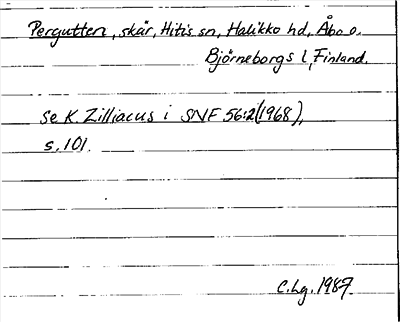 Pergutten, skär, Hitis sn, Halikko hd, Åbo o.
Björneborgs l, Finland.
Se K. Zilliacus i SNF 56:2(1968),
s. 101.
C.Lg. 1987.